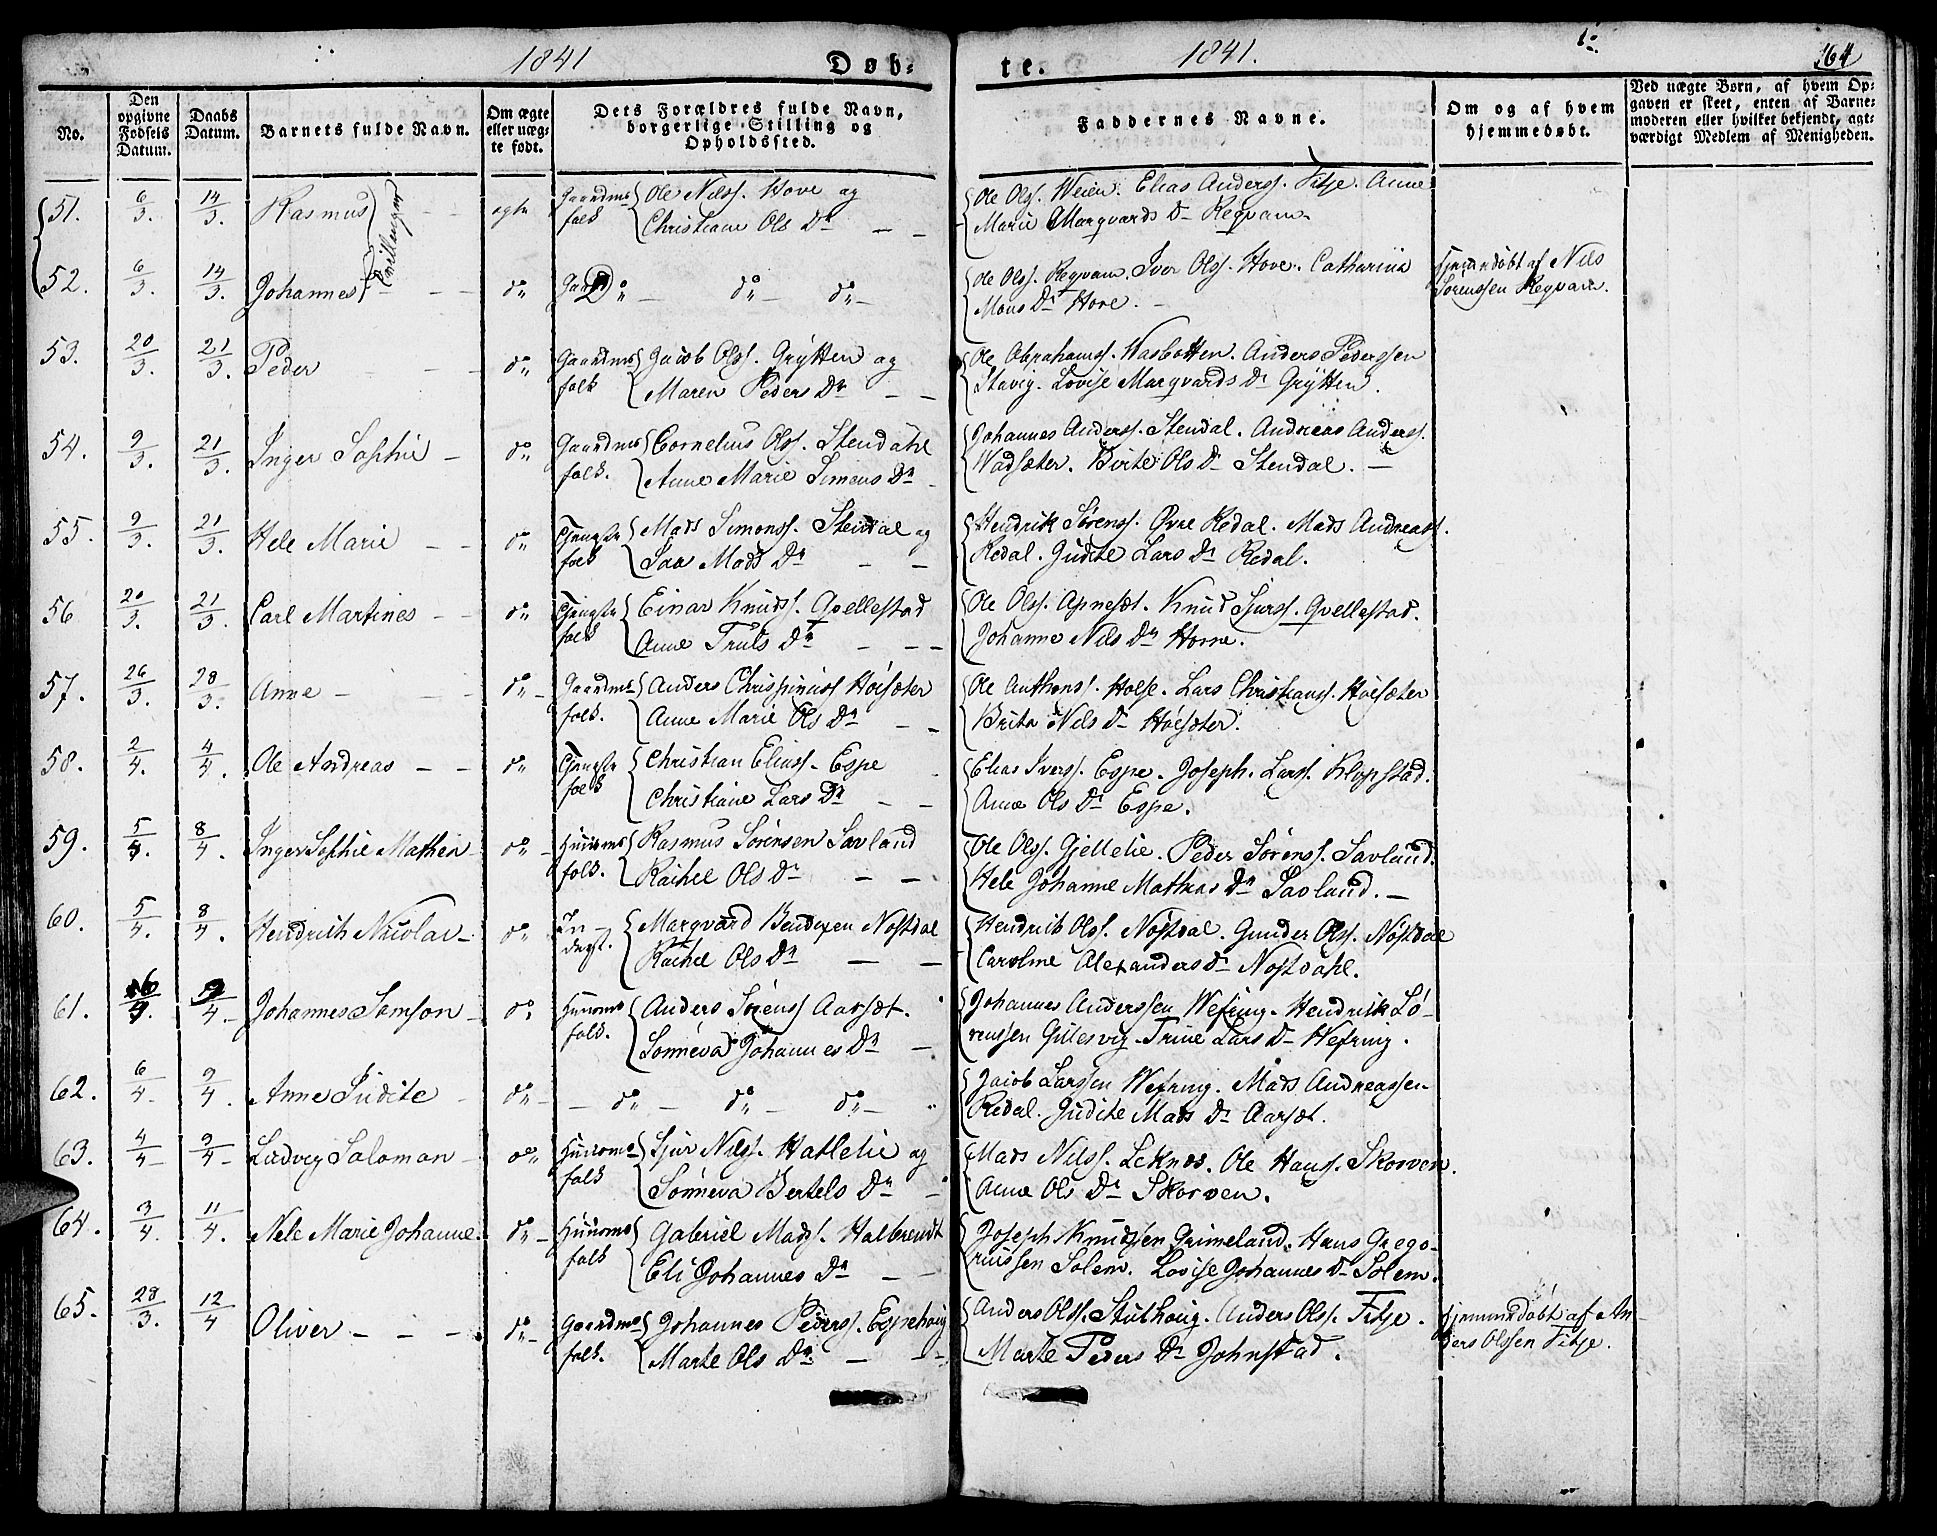 1841 Døb-
te. 1841. 164
No.
Den opgivne Fødsels Datum.
Daabs Datum.
Barnets fulde Navn.
Om ægte eller uægte født.
Dets Forældres fulde Navn, borgerlige Stilling og Opholdssted.
Faddernes Navne.
Om og af hvem hjemmedøbt.
Ved uægte Børn, af hvem Opgaven er skeet, enten af Barnemoderen eller hvilket bekjendt, agtværdigt Medlem af Menigheden.
51. 6/3. 14/3. Rasmus Tvillinger ægte Gaardms folk Ole Nilss. Hove og
Christiane Ols Dr
Ole Olss. Weien. Elias Anderss. Fitje. Anne
Marie Marqvards Dr Reqvam
52. 6/3. 14/3. Johannes do Do do do
Ole Olss. Reqvam. Iver Olss. Hove. Catharina
Mons Dr Hove.
Hjemmedøbt af Nils
Sørenssen Reqvam.
53. 20/3. 21/3. Peder do Gaardms folk Jacob Olss. Grytten og
Maren Peders Dr
Ole Abrahamss. Wasbotten. Anders Pederssen
Stavig. Lovise Marqvards Dr Grytten.
54. 9/3. 21/3. Inger Sophie do Gaardms folk. Cornelius Olss. Stendahl
Anne Marie Simens Dr
Johannes Anderss. Stendal. Andreas Anderss.
Wadsæter. Birte Ols Dr Stendal.
55. 9/3. 21/3. Hele Marie do Tjengste folk Mads Simonss. Stendal og
Mads Dr
Hendrik Sørenss. Øvre Redal. Mads Andreass.
Redal. Judite Lars Dr Redal.
56 20/3. 21/3. Carl Martines do Tjengste folk Einar Knudss. Qvellestad
Anne Truls Dr
Ole Olss. Knud Sjurss. Qvellestad.
Johanne Nils Dr Horne.
57. 26/3. 28/3. Anne do Gaardms folk. Anders Chrispinuss Høisæter
Anne Marie Ols Dr
Ole Anthons. Holse. Lars Christians. Høisæter
Brita Nils Dr Høisæter.
58. 2/4. 4/4. Ole Andreas do Tjengste folk Christian Eliass. Espe
Christiane Lars Dr
Elias Ivers. Espe. Joseph. Larss. Klopstad.
Anne Ols Dr Espe.
59. 5/4. 8/4. Inger Sophie Mathea do Huusms folk. Rasmus Sørensen Savland
Rachel Ols Dr
Ole Olss. Gjellelie. Peder Sørenss. Savland.
Hele Johanne Mathias Dr Savland.
60. 5/4. 8/4. Hendrich Nicolai do Inderst. Marqvard Bendixen Nøstdal
Rachel Ols Dr
Hendrik Olss. Nøstdal. Gunder Olss. Nøstdal
Caroline Alexanders Dr Nøstdahl.
61. 6/4. 9/4. Johannes Samson do Huusms folk. Anders Sørenss Aarsæt.
Sønneva Johannes Dr
Johannes Anderssen Wefring. Hendrik Sø-
renssen Gillesvig. Trine Lars Dr Wefring.
62. 6/4. 9/4. Anne Judite do do do do
Jacob Larssen Wefring. Mads Andreassen
Redal. Judite Mads Dr Aarsæt.
63. 4/4 9/4 Ludvig Salomon do Huusms folk Sjur Nilss. Hatlelie og
Sønneva Bertels Dr
Mads Nilss. Leknes. Ole Hanss. Skorven.
Anne Ols Dr Skorven.
64. 3/4. 11/4. Nele Marie Johanne do Huusms folk Gabriel Madss. Halbrendt
Eli Johannes Dr
Joseph Knudssen Grimeland. Hans Grego-
riussen Solem. Lovise Johannes Dr Solem.
65. 28/3. 12/4 Oliver do Gaardms folk. Johannes Pederss. Espehoug
Marte Ols Dr
Anders Olss. Stuthoug. Anders Olss. Fitje.
Marte Peders Dr Johnstad.
Hjemmedøbt af An-
ders Olssen Fitje.